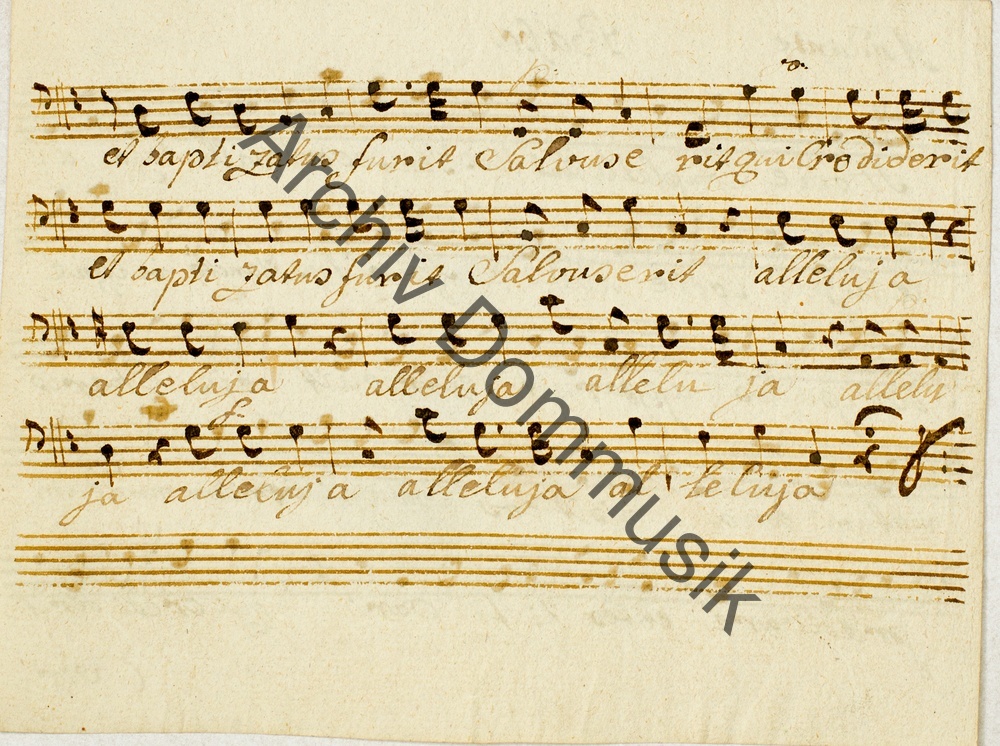 et bapti zatus furit Salvuse rit qui Crediderit
et bapti zatus furit Salvuserit alleluja
alleluja alleluja allelu ja allelu
ja alleluja alleluja al leluja
Archiv Dommusik